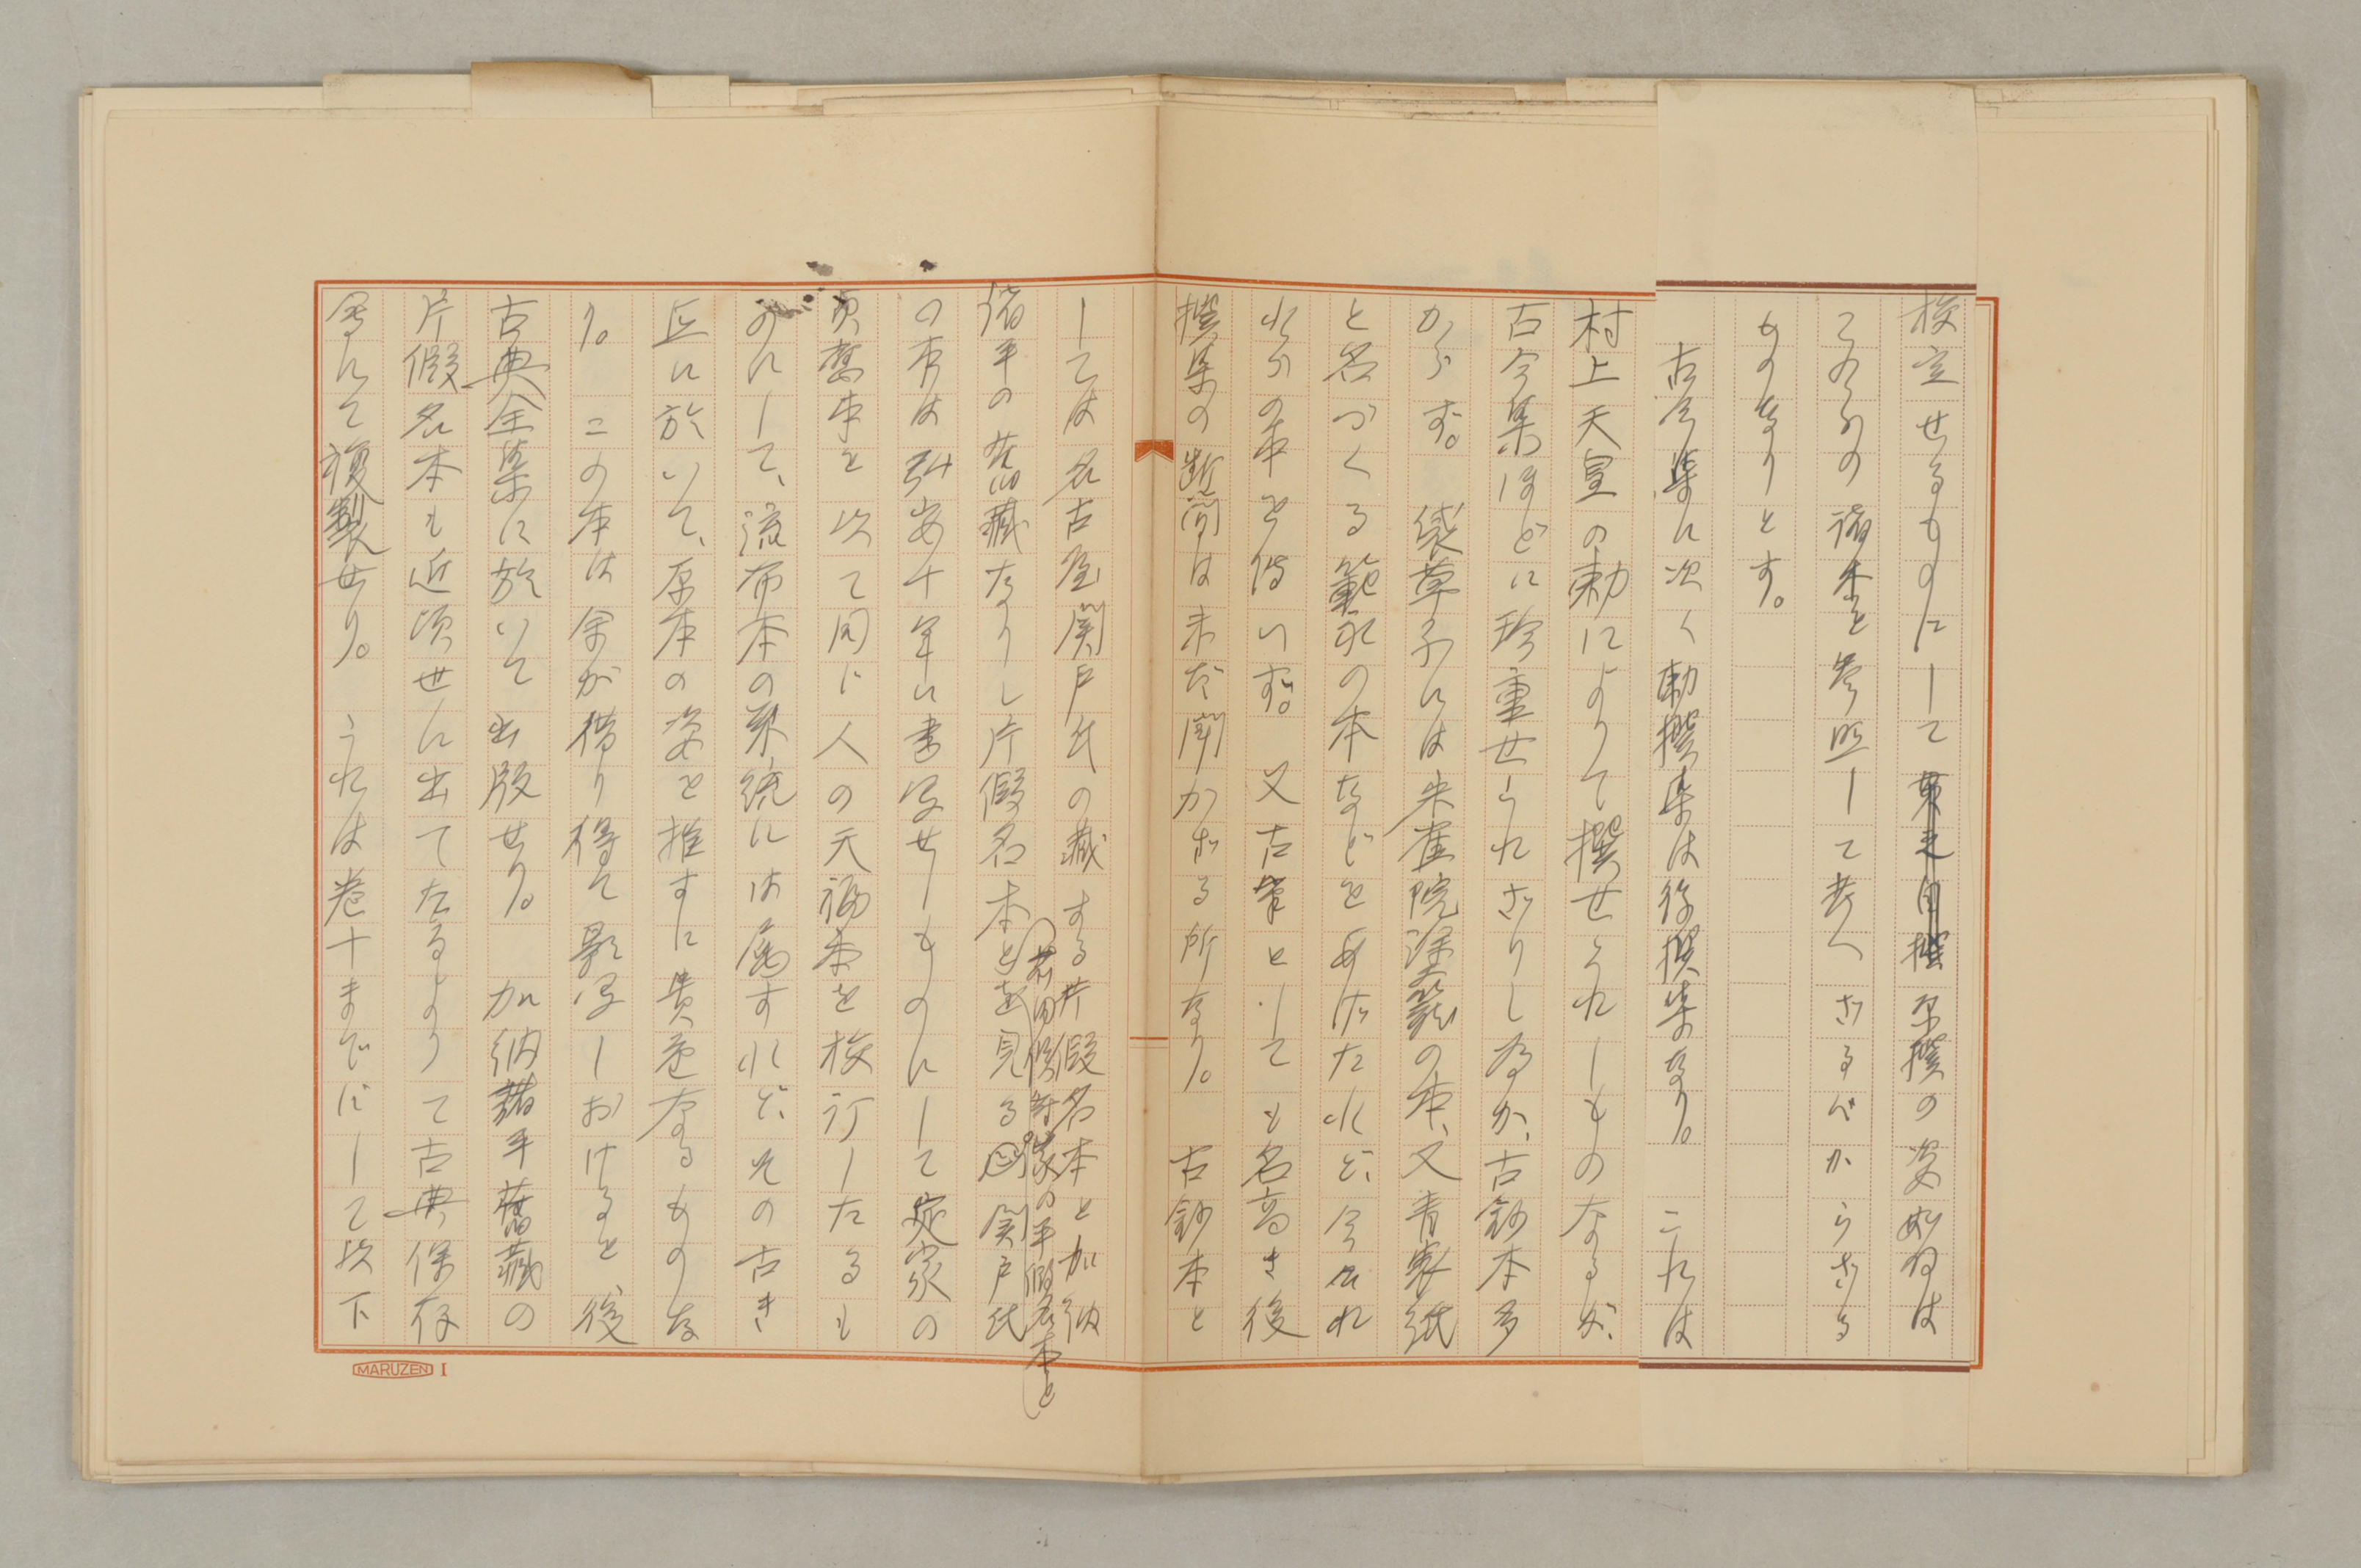 校立せるものにして原撰の姿如何は
これらの諸本を参照して考へざるべからざる
ものなりとす。
古今集に次く勅撰集は後撰集なり。これは
村上天皇の勅によりて撰せられしものなるが、
古今集ほどに珍重せられざりし為か、古鈔本多
からず。袋草子には朱雀院塗籠の本、又青表紙
と名づくる範永の本などをあげたれど、今これ
れらの本を傳いず。又古筆としても名高き後
撰集の断簡は未だ聞かざる所なり。古鈔本と
しては名古屋関戸氏の蔵する片假名本と加納
諸平の舊蔵なりし片假名本とを見る
の平假名本と
関戸氏
の本は弘安十年に書写せしものにして定家の
貞應本を以て同じ人の天福本を校訂したるも
のにして、流布本の系統には属すれど、その古き
点に於いて、原本の姿を推すに貴重なるものな
り。この本は余が借り得て影写しおけるを、後
古典全集に於いて出版せり。加納諸平舊蔵の
片假名本も近頃世に出てたるよりて古典保存
會にて複製せり。これは巻十までにして以下
MARUZEN I